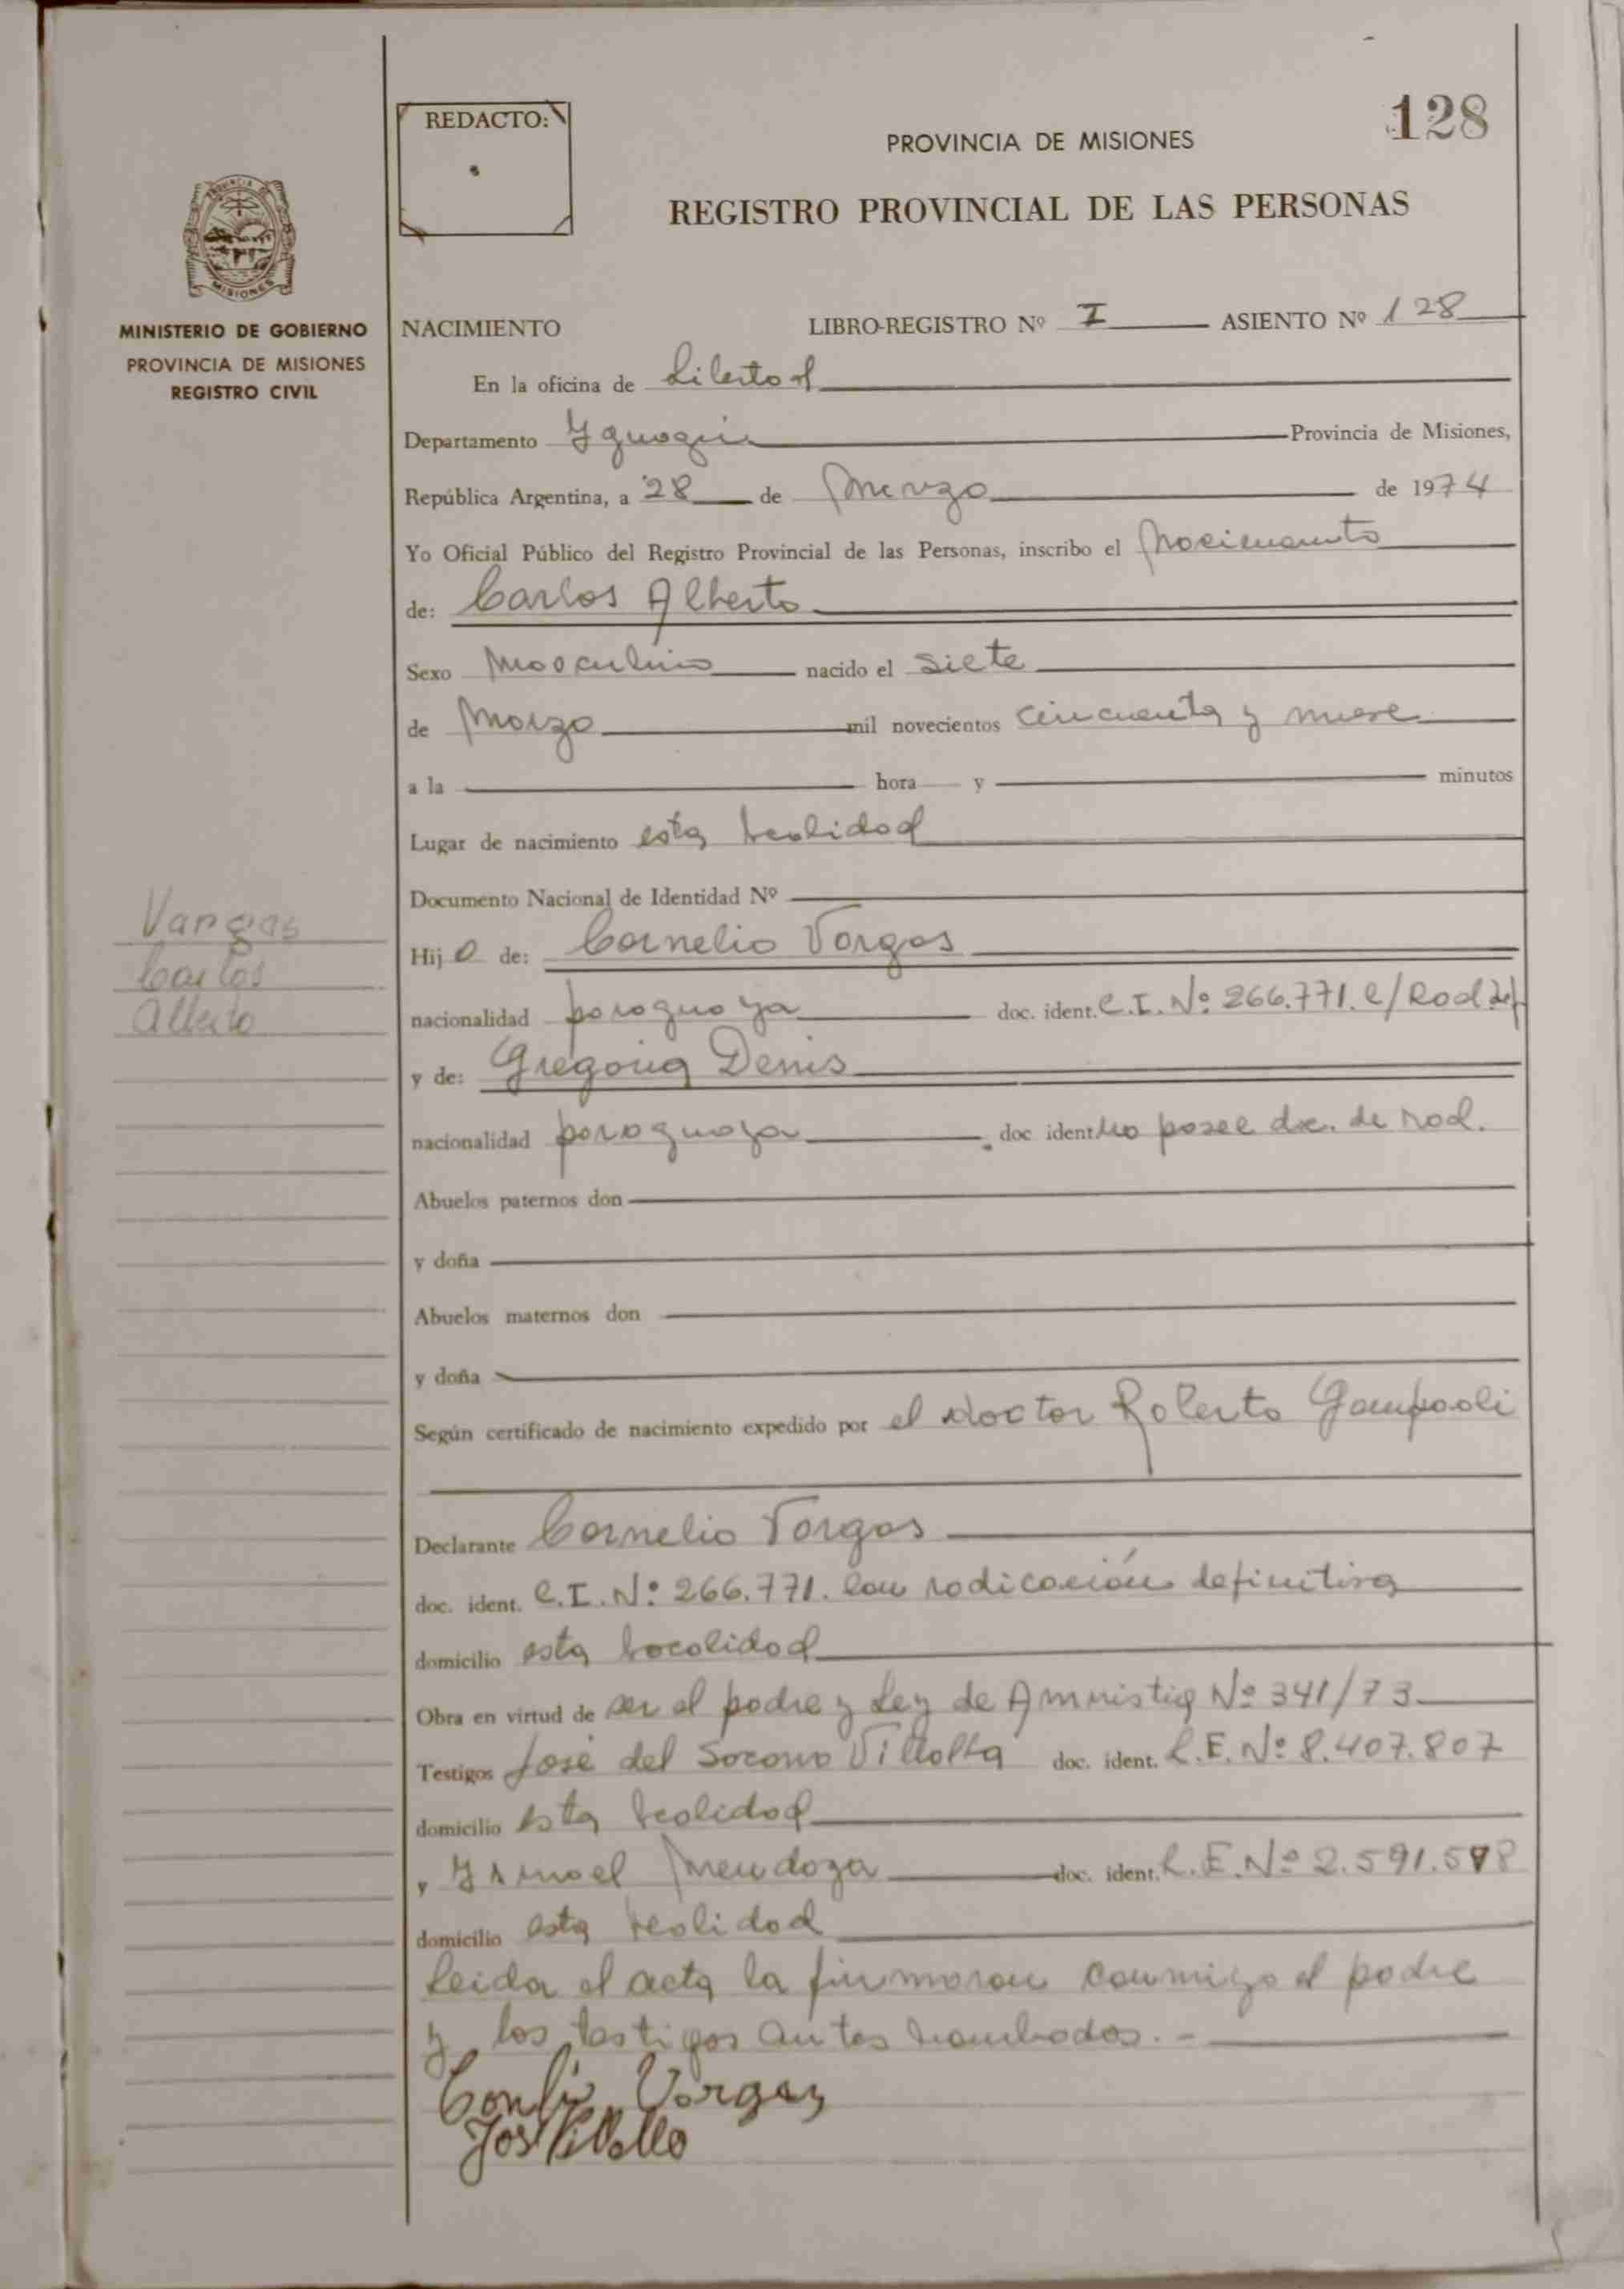 128
REDACTO:
PROVINCIA DE MISIONES
REGISTRO PROVINCIAL DE LAS PERSONAS
MISIONES
MINISTERIO DE GOBIERNO
PROVINCIA DE MISIONES
REGISTRO CIVIL
NACIMIENTO LIBRO-REGISTRO Nº I ASIENTO Nº 128
En la oficina de Libertad
Departamento Yguazú Provincia de Misiones,
República Argentina, a 28 de Marzo de 1974
Yo Oficial Público del Registro Provincial de las Personas, inscribo el Nacimiento
de: Carlos Alberto
Sexo Masculino nacido el siete
de Marzo mil novecientos cincuenta y nueve
a la hora y minutos
Lugar de nacimiento esta localidad
Documento Nacional de Identidad Nº
Vargas
Carlos
Alberto
Hijo de: Cornelio Vargas
nacionalidad paraguaya doc. ident. C.I. Nº 266.771. c/Rad def
y de: Gregoria Denis
nacionalidad paraguaya doc ident. No posee doc. de rad.
Abuelos paternos don
y doña
Abuelos maternos don
y doña
Según certificado de nacimiento expedido por el doctor Roberto Gampaoli
Declarante Cornelio Vargas
doc. ident. C.I. Nº 266.771. con radicación definitiva
domicilio esta localidad
Obra en virtud de ser el padre y Ley de Amnistia Nº 341/73
Testigos José del Socorro Villalba doc. ident. L.E. Nº 8.407.807
domicilio esta localidad
y Ismael Mendoza doc. ident. L.E. Nº 2.591.578
domicilio esta localidad
Leida el acta la firmaron conmigo el padre
y los testigos antes nombrados. -
Vargas